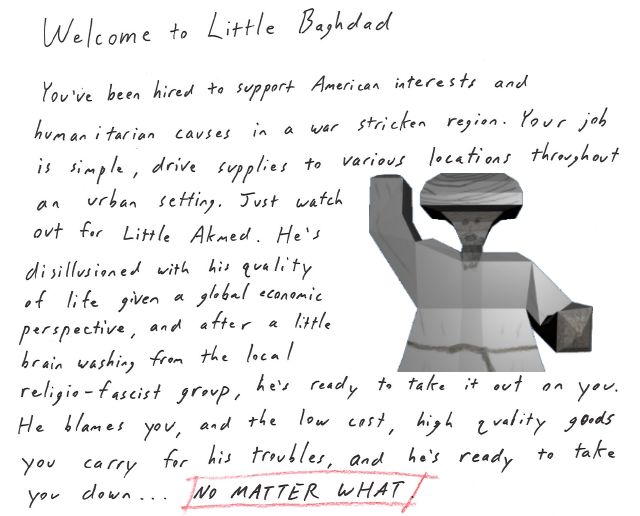 Welcome to Little Baghdad
You've been hired to support American interests and
humanitarian causes in a war stricken region. Your job
is simple, drive supplies to various locations throughout
an urban setting. Just watch
out for Little Akmed. He's
disillusioned with his quality
of life given a global economic
perspective, and after a little
brain washing from the local
religio-fascist group, he's ready to take it out on you.
He blames you, and the low cost, high quality goods
you carry for his troubles, and he's ready to take
you down... NO MATTER WHAT.